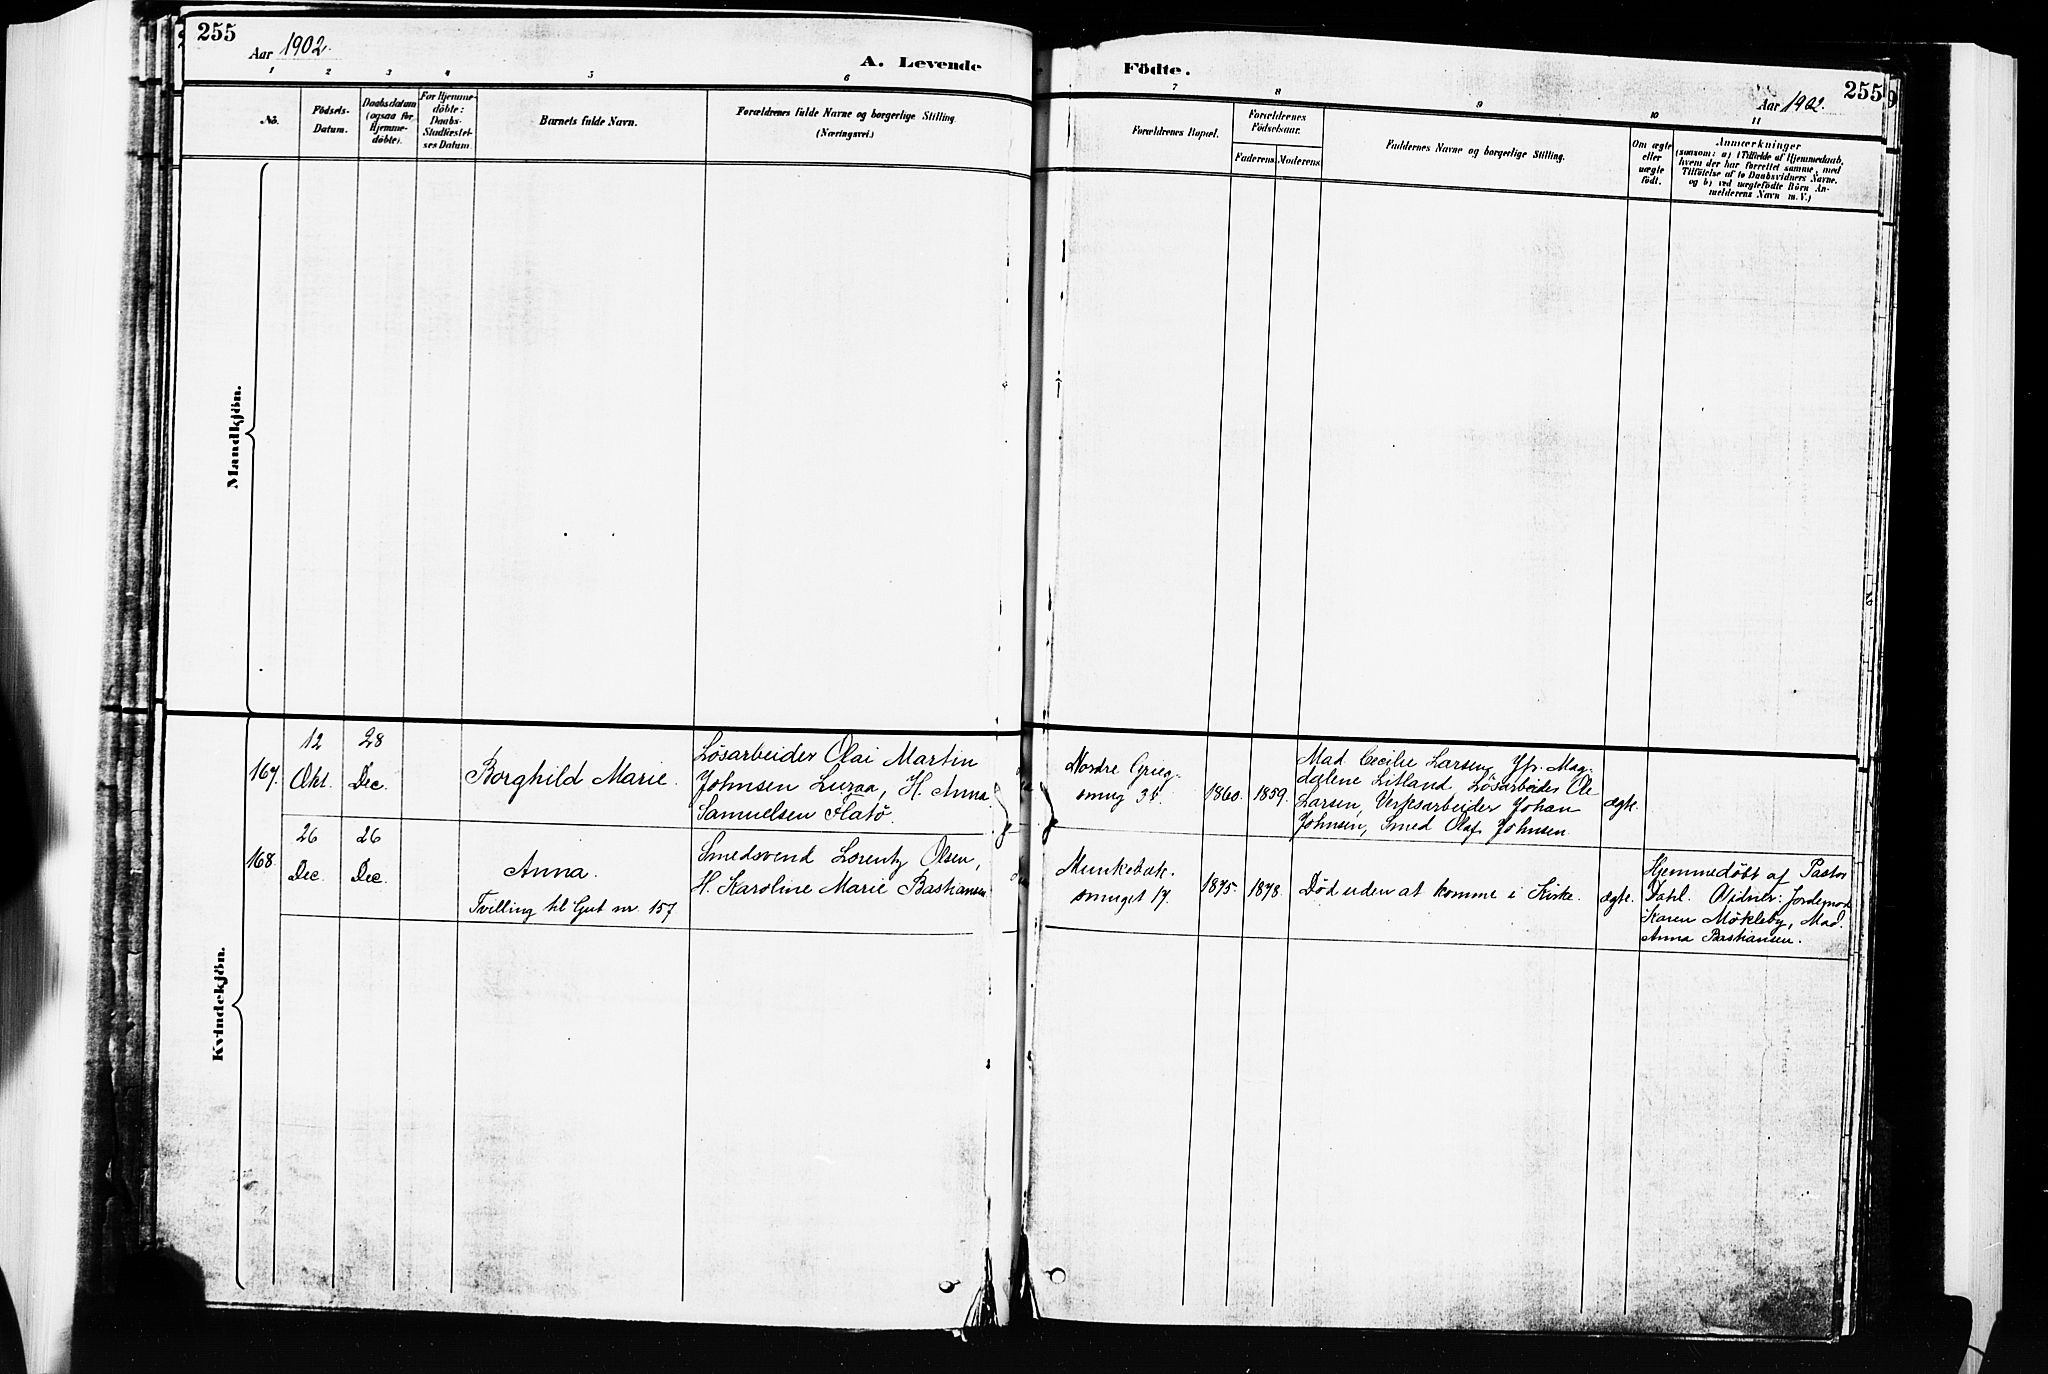 255
Aar 1902.
A. Levende
Födte.
255
Aar 1902.
1 2 3 4 5 6 7 8 9 10 11
No.
Födsels-
Datum.
Daabsdatum
(ogsaa for
Hjemme-
döbte).
For Hjemme-
döbte:
Daabs-
Stadfæstel-
ses Datum.
Barnets fulde Navn.
Forældrenes fulde Navne og borgerlige Stilling
(Næringsvei.)
Forældrenes Bopæl.
Forældrenes
Födselsaar.
Faderens. Moderens.
Faddernes Navne og borgerlige Stilling.
Om ægte
eller
uægte
födt.
Anmærkninger
(saasom: a) i Tilfælde af Hjemmedaab,
hvem der har forrettet samme, med
Tilföielse af to Daabsvidners Navne.
og b) ved uægtefödte Börn An-
melderens Navn m. V.)
Mandkjön.
Kvindekjön.
167.
12
Okt.
28
Dec.
Borghild Marie.
Løsarbeider Olai Martin
Johnsen Luraa, H. Anna
Samuelsen Flatø.
Nordre Grieg-
smug 3b.
1860.
1859.
Mad Cecilie Larsen, Jfr. Mag-
dalene Litland, Løsarbeider Ole
Larsen, Verksarbeider Johan
Johnsen, Smed Olaf Johnsen.
ægte.
168.
26
Dec.
26
Dec.
Anna.
Tvilling til Gut nr. 157
Smedsvend Lorentz Olsen,
H. Karoline Marie Bastiansen
Munkebæk-
smuget 17.
1875.
1878.
Død uden at komme i Kirke.
ægte.
Hjemmedøbt af Pastor
Dahl. Vidner: Jordemor
Karen Møkleby, Mad.
Anna Bastiansen.